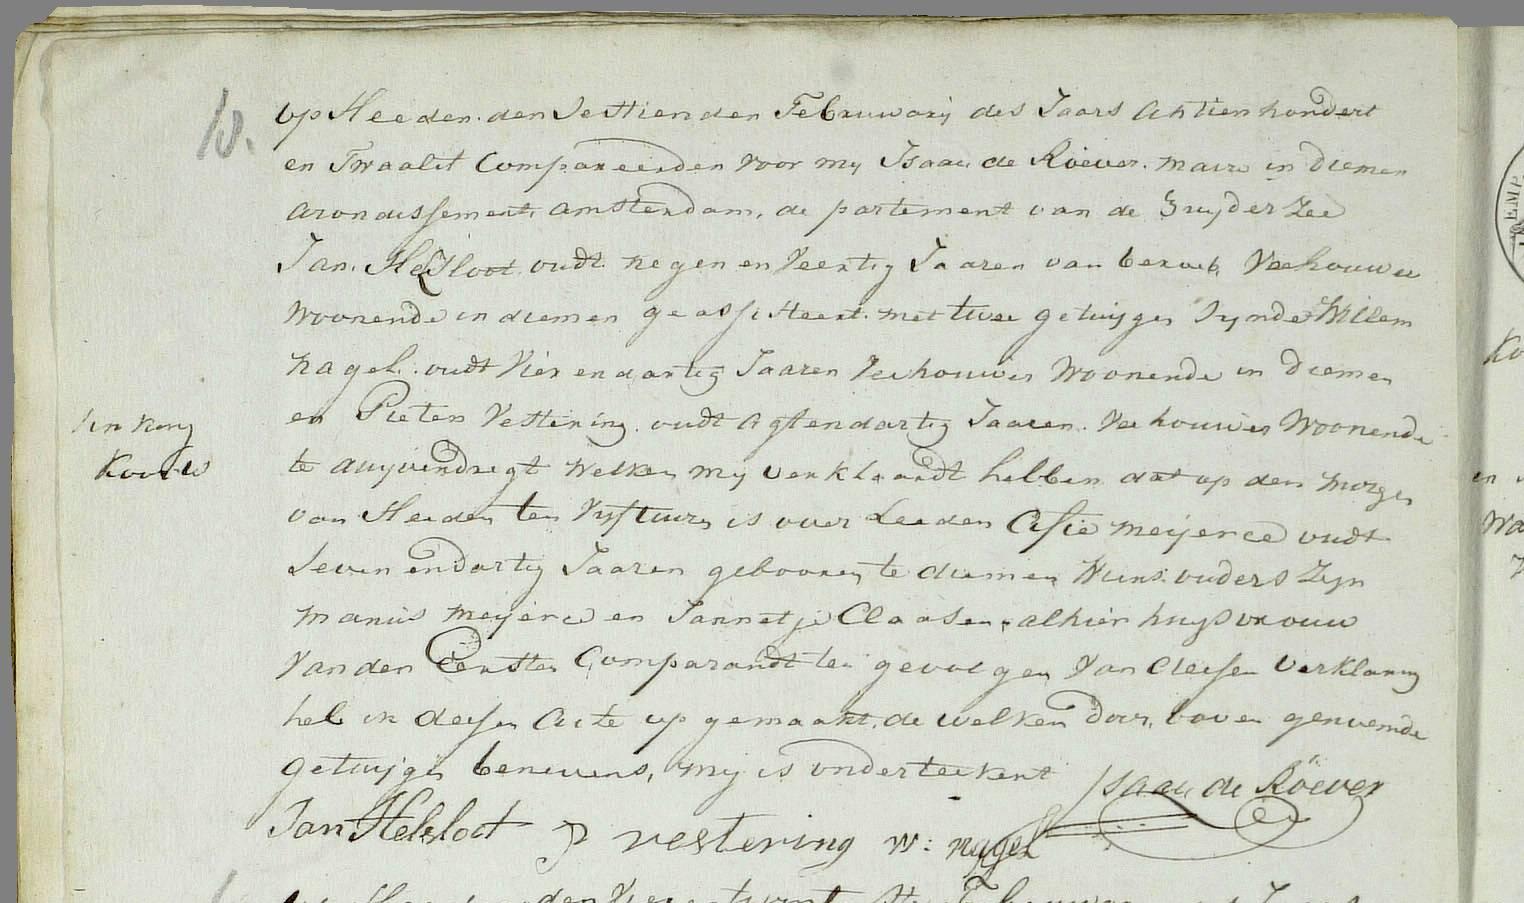 13.
op Heeden den Sestienden Februwarij des Jaars Achtienhondert
en Twaalft Compareerden voor my Isaac de Röever maire in Diemen
Arondissement Amsterdam, de partement van de Zuyder Zee
Jan Helsloot oudt negen en Veertig Jaaren van beroeb Veehouwer
Woonende in diemen geassisteert met twee getuijgen Synde Willem
nagel oudt Vier en dartig Jaaren Veehouwer Woonende in Diemen
en Pieter Vestering oudt Agtendartig Jaaren Veehouwer Woonende
te duyvendregt welken my verklaardt hebben dat op den morgen
van Heeden ten Vyf uuren is over Leeden Aefie meijerce oudt
Seven endartig Jaaren gebooren te diemen Wiens ouders Zyn
manus meijerce en Jannetje Claasen alhier huysvrouw
Van den Eersten Comparandt ten gevolgen Van deesen Verklaring
heb ik deesen Acte op gemaakt de welken door boven genoemde
getuijgen benevens my is onderteekent
Isaac de Röever
Jan Helsloot P vestering W: nagel
Koorde